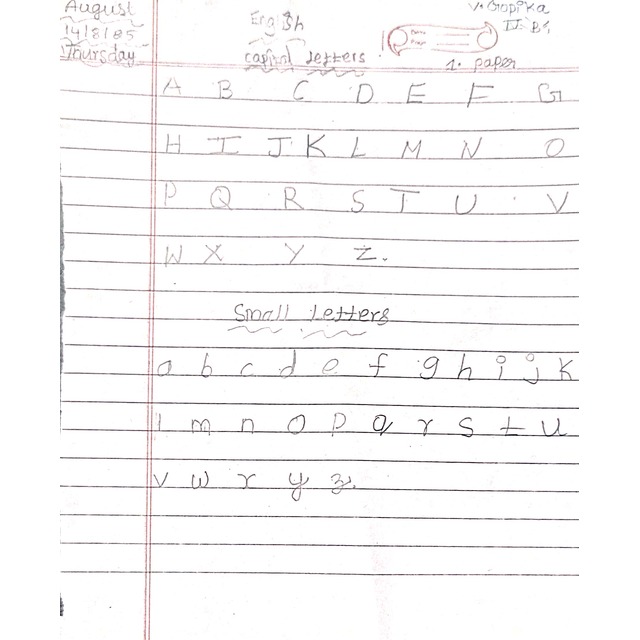 August
14/8/25
Thursday
English
capital letters
V. Gopika
II B
1. paper
A B C D E F G
H I J K L M N O
P Q R S T U V
W X Y Z.
Small letters
a b c d e f g h i j k
l m n o p q r s t u
v w x y z.